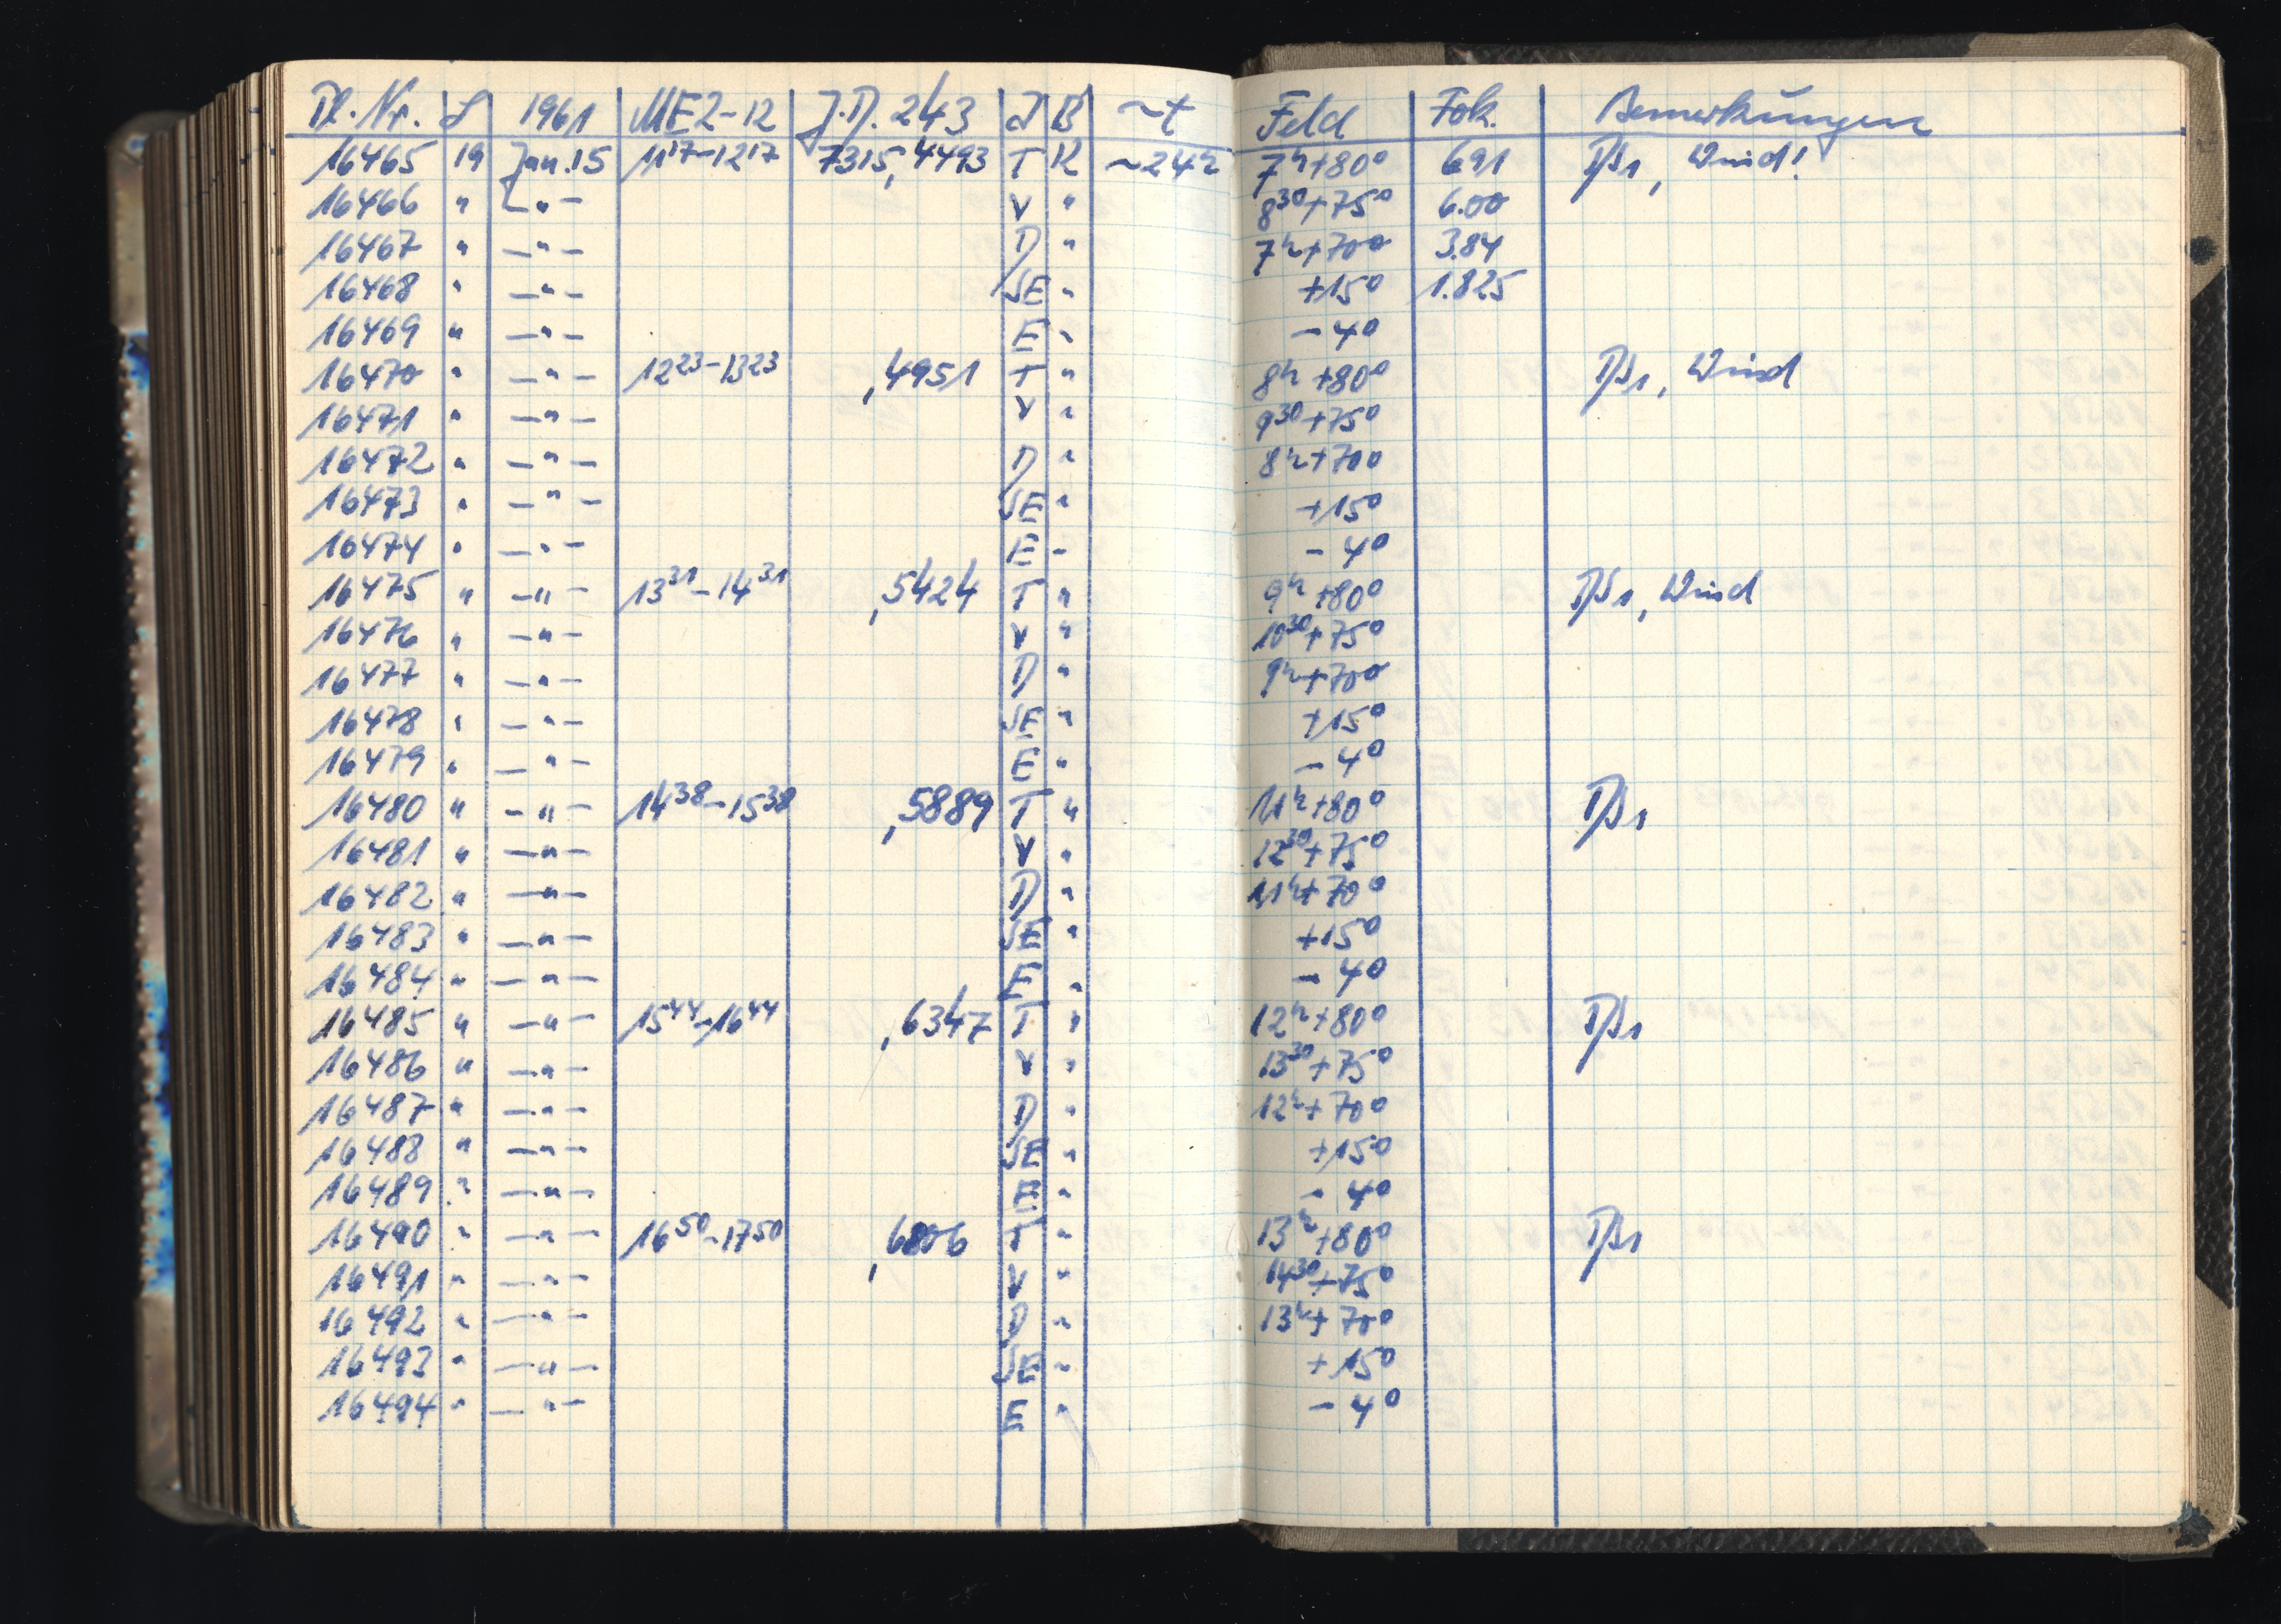 Pl. Nr. L 1961 MEZ-12 J.D. 243 J B ~t Feld Fok. Bemerkungen
16465 19 Jan. 15 11¹⁷-12¹⁷ 7315,4493 T K ~24ʰ 7ʰ+80° 6.91 , Wind!
16466 " -"- V " 8³⁰+75° 6.00
16467 " -"- D " 7ʰ+70° 3.84
16468 " -"- SE " +15° 1.825
16469 " -"- E " -4°
16470 " -"- 12²³-13²³ ,4951 T " 8ʰ+80° , Wind
16471 " -"- V " 9³⁰+75°
16472 " -"- D " 8ʰ+70°
16473 " -"- SE " +15°
16474 " -"- E - -4°
16475 " -"- 13³¹-14³¹ ,5424 T " 9ʰ+80° , Wind
16476 " -"- V " 10³⁰+75°
16477 " -"- D " 9ʰ+70°
16478 " -"- SE " +15°
16479 " -"- E " -4°
16480 " -"- 14³⁸-15³⁸ ,5889 T " 11ʰ+80°
16481 " -"- V " 12³⁰+75°
16482 " -"- D " 11ʰ+70°
16483 " -"- SE " +15°
16484 " -"- E " -4°
16485 " -"- 15⁴⁴-16⁴⁴ ,6347 T " 12ʰ+80°
16486 " -"- V " 13³⁰+75°
16487 " -"- D " 12ʰ+70°
16488 " -"- SE " +15°
16489 " -"- E " -4°
16490 " -"- 16⁵⁰-17⁵⁰ ,6806 T " 13ʰ+80°
16491 " -"- V " 14³⁰+75°
16492 " -"- D " 13ʰ+70°
16493 " -"- SE " +15°
16494 " -"- E " -4°